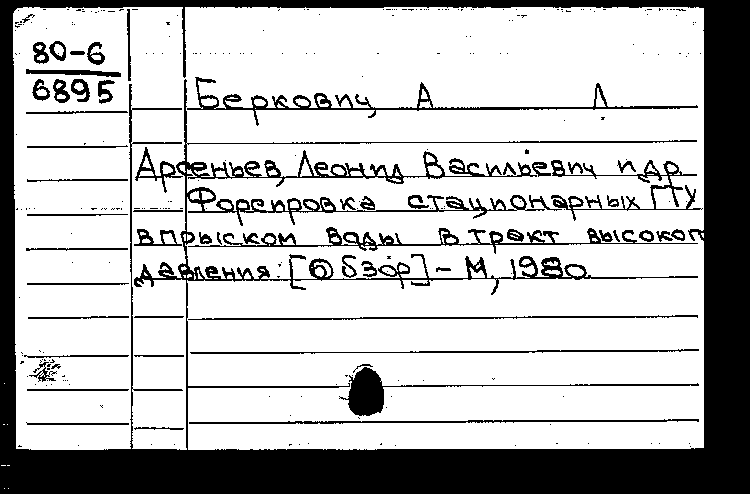 80-6
6895
Беркович, А Л
Арсеньев, Леонид Васильевич и др.
Форсировка стационарных ГТУ
впрыском воды в тракт высокого
давления: [Обзор] - М, 1980